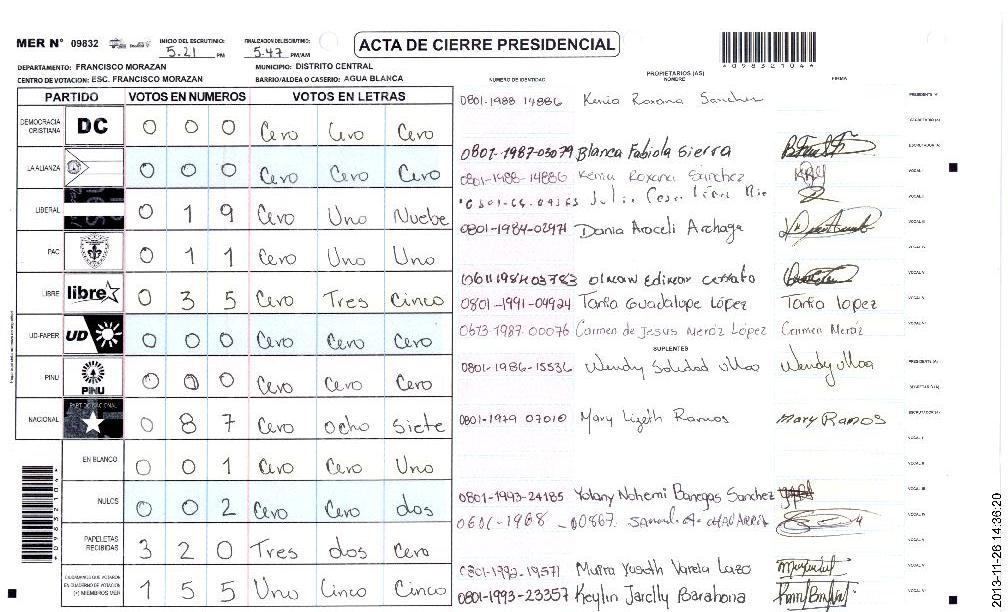 MER N° 09832 INICIO DEL ESCRUTINIO: 5.21 PM FINALIZACION ESCRUTINIO: 5.47 PM/AM
ACTA DE CIERRE PRESIDENCIAL
*098321044*
DEPARTAMENTO: FRANCISCO MORAZAN MUNICIPIO: DISTRITO CENTRAL
CENTRO DE VOTACION: ESC. FRANCISCO MORAZAN BARRIO/ALDEA O CASERIO: AGUA BLANCA
NUMERO DE IDENTIDAD PROPIETARIOS (AS) NOMBRE FIRMA
PARTIDO VOTOS EN NUMEROS VOTOS EN LETRAS
DEMOCRACIA CRISTIANA DC 0 0 0 Cero Cero Cero
LA ALIANZA 0 0 0 Cero Cero Cero
LIBERAL 0 1 9 Cero Uno Nuebe
PAC 0 1 1 Cero Uno Uno
LIBRE libre 0 3 5 Cero Tres Cinco
UD-FAPER UD 0 0 0 Cero Cero Cero
PINU PINU 0 0 0 Cero Cero Cero
NACIONAL PARTIDO NACIONAL 0 8 7 Cero Ocho Siete
EN BLANCO 0 0 1 Cero Cero Uno
NULOS 0 0 2 Cero Cero dos
PAPELETAS RECIBIDAS 3 2 0 Tres dos Cero
CIUDADANOS QUE VOTARON EN CUADERNO DE VOTACION (+) MIEMBROS MER 1 5 5 Uno Cinco Cinco
0801-1988 14886 Kenia Roxana Sanchez
0801-1987-03079 Blanca Fabiola Sierra
0801-1988-14886 Kenia Roxana Sánchez
0801-1984-02971 Dania Araceli Archaga
0801-1991-04924 Tania Guadalupe López Tania lopez
0613-1987-00076 Carmen de Jesus Meráz López Carmen Meráz
SUPLENTES
0801-1986-15536 Wendy Soledad Wendy
0801-1979 07010 Mary Lizeth Ramos Mary Ramos
0801-1993-24185 Yolany Nohemi Banegas Sanchez
Yuseth Varela Lazo
0801-1993-23357 Keylin Jarelly Barahona
2013-11-26 14:36:20